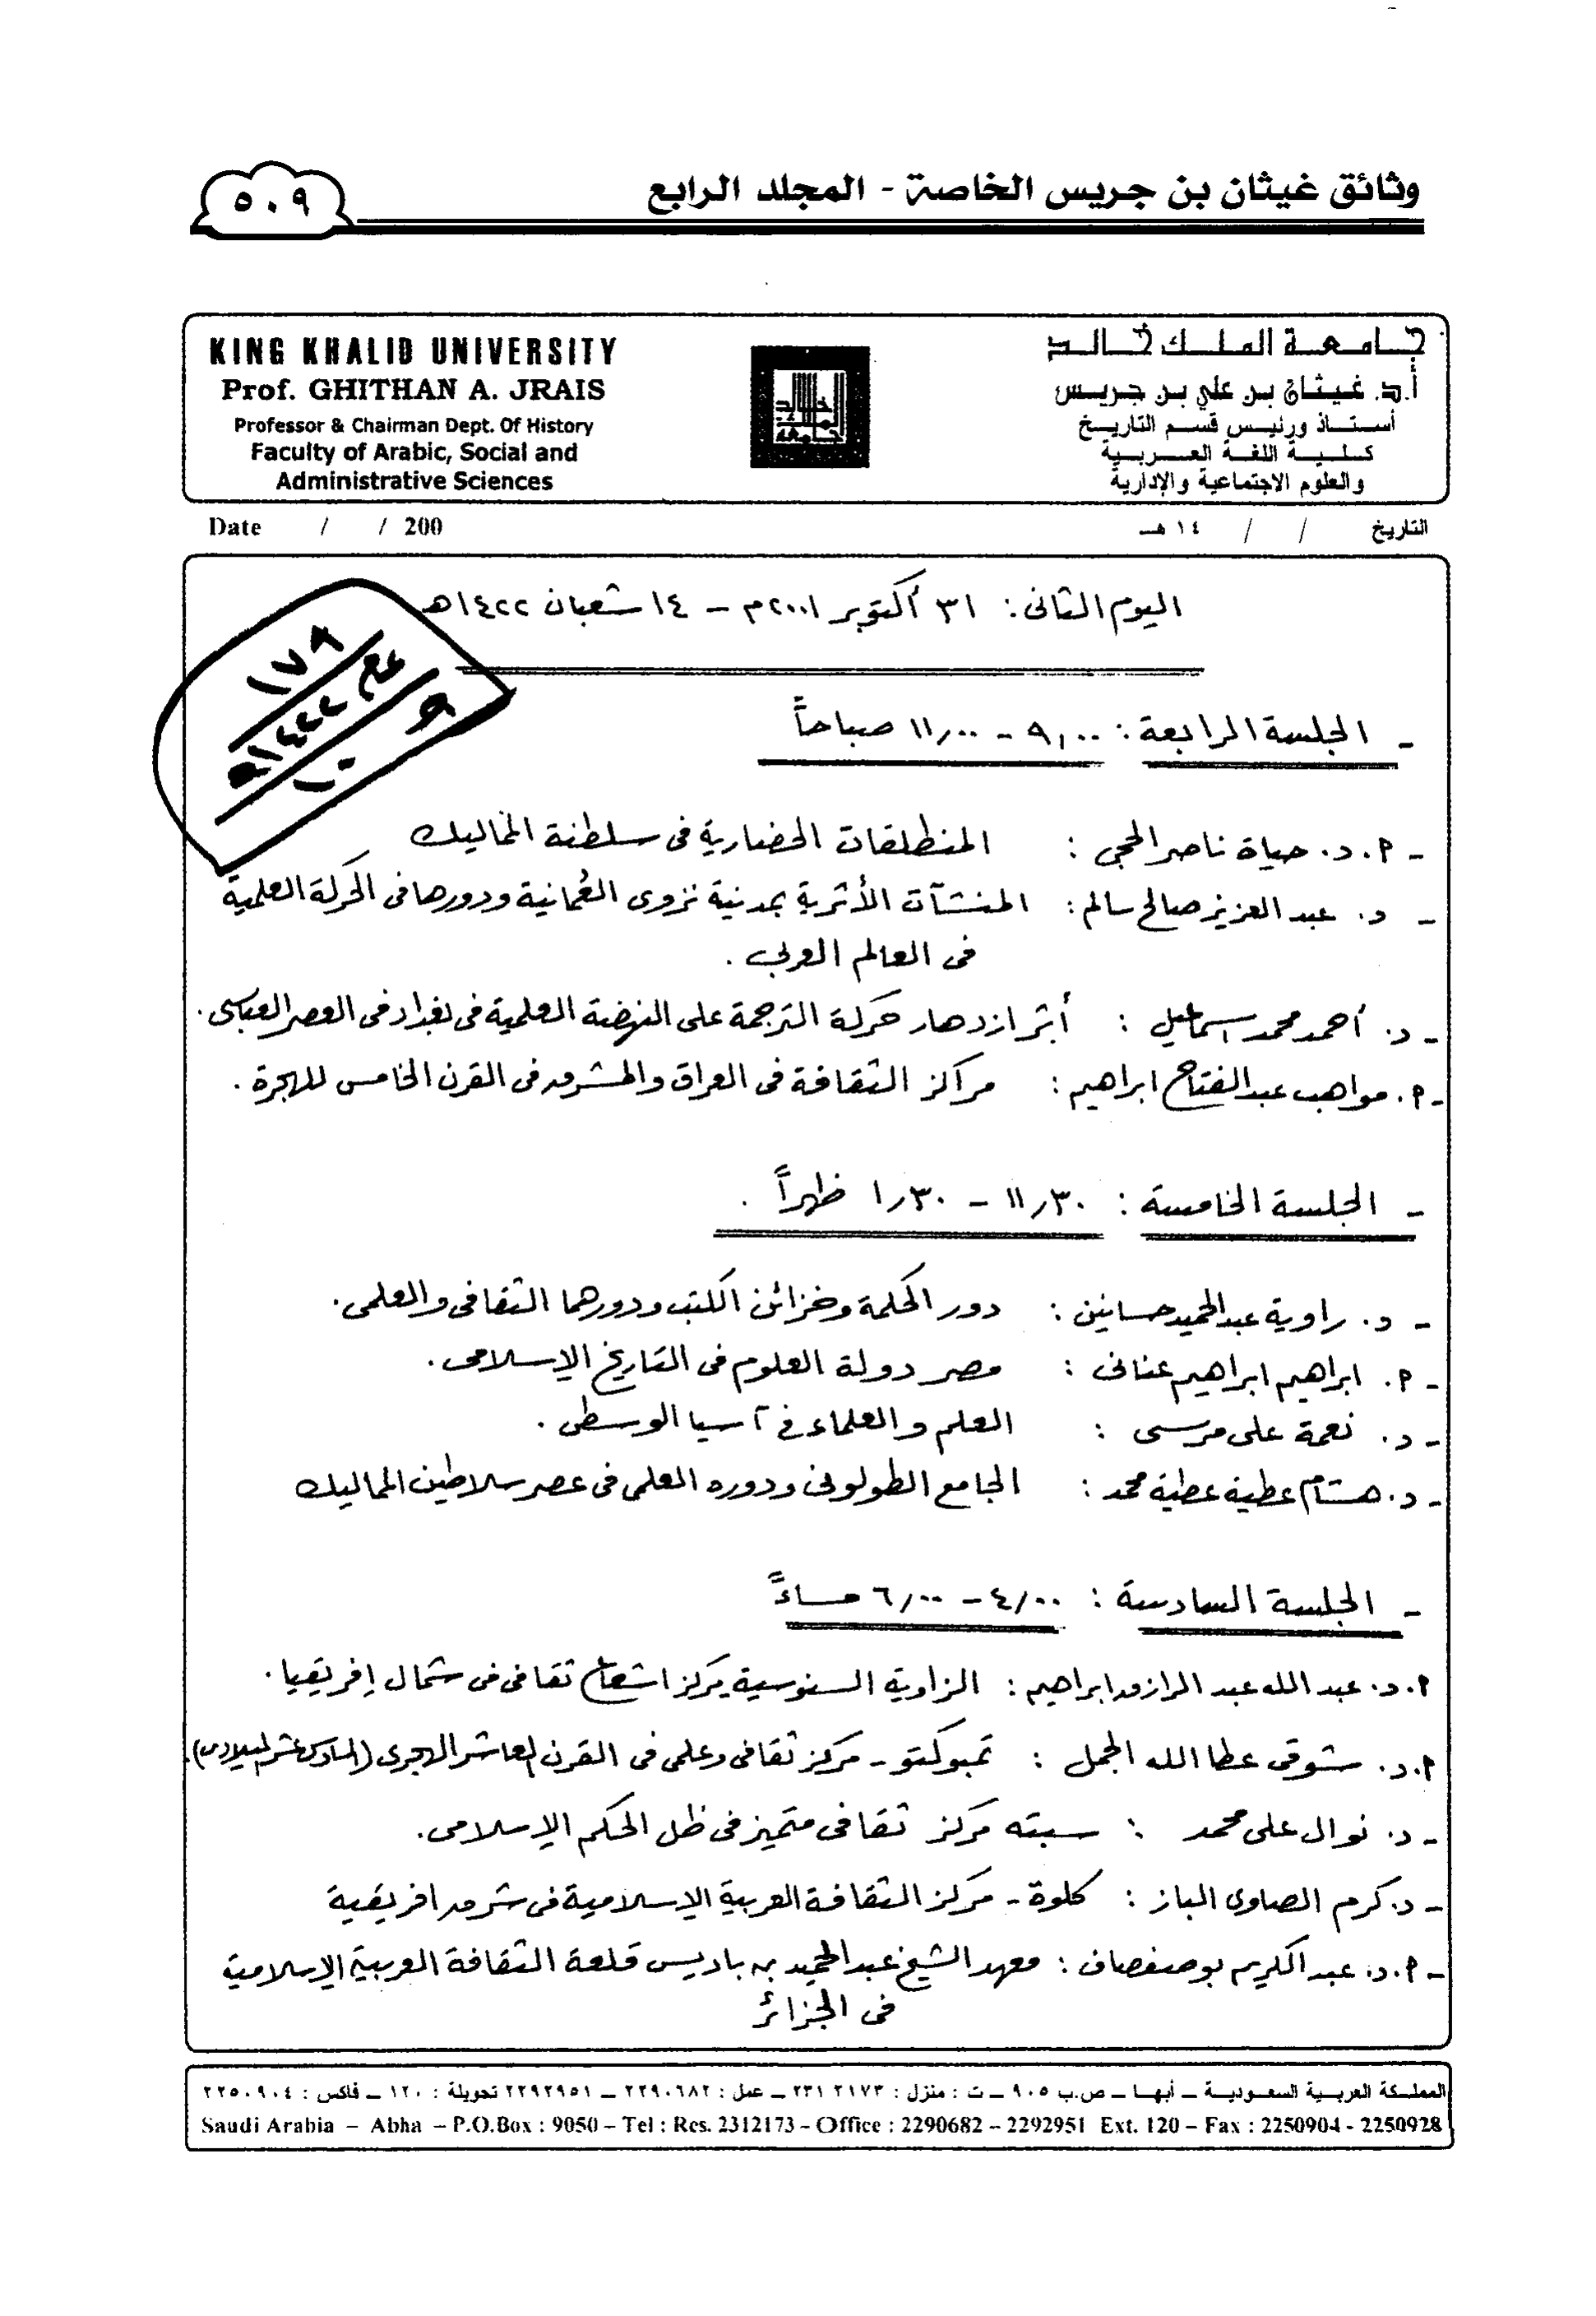 وثائق غيثان بن جريس الخاصة - المجلد الرابع
٥٠٩
KING KHALID UNIVERSITY
Prof. GHITHAN A. JRAIS
Professor & Chairman Dept. Of History
Faculty of Arabic, Social and
Administrative Sciences
جامعة الملك خالد
أ.د. غيثان بن علي بن جريس
أستاذ ورئيس قسم التاريخ
كلية اللغة العربية
والعلوم الاجتماعية والإدارية
Date / / 200
التاريخ / / ١٤ هـ
اليوم الثانى : ٣١ أكتوبر ٢٠٠١م - ١٤ شعبان ١٤٢٢هـ
١٧٩
١٤٢٢هـ
- الجلسة الرابعة : ٩,٠٠ - ١١,٠٠ صباحاً
- أ.د. حياة ناصر الحجى : المنطلقات الحضارية فى سلطنة المماليك
- د. عبد العزيز صالح سالم : المنشآت الأثرية بمدينة نزوى العُمانية ودورها فى الحركة العلمية
فى العالم العربى .
- د. أحمد محمد اسماعيل : أثر ازدهار حركة الترجمة على النهضة العلمية فى بغداد فى العصر العباسى .
- أ. مواهب عبد الفتاح ابراهيم : مراكز الثقافة فى العراق والمشرق فى القرن الخامس للهجرة .
- الجلسة الخامسة : ١١,٣٠ - ١,٣٠ ظهراً .
- د. راوية عبد الحميد حسانين : دور الحكمة وخزائن الكتب ودورهما الثقافى والعلمى .
- أ. ابراهيم ابراهيم عنانى : مصر دولة العلوم فى التاريخ الإسلامى .
- د. نعمة على مرسى : العلم والعلماء فى آسيا الوسطى .
- د. هشام عطية عطية محمد : الجامع الطولونى ودوره العلمى فى عصر سلاطين المماليك
- الجلسة السادسة : ٤,٠٠ - ٦,٠٠ مساءً
أ.د. عبد الله عبد الرازق ابراهيم : الزاوية السنوسية مركز اشعاع ثقافى فى شمال إفريقيا .
أ.د. شوقى عطا الله الجمل : تمبوكتو - مركز ثقافى وعلمى فى القرن العاشر الهجرى (السادس عشر الميلادى).
- د. نوال على محمد : سبته مركز ثقافى متميز فى ظل الحكم الإسلامى .
- د. كرم الصاوى الباز : كلوة - مركز الثقافة العربية الإسلامية فى شرق افريقية
- أ.د. عبد الكريم بوصفصاف : معهد الشيخ عبد الحميد بن باديس قلعة الثقافة العربية الإسلامية
فى الجزائر
المملكة العربية السعودية – أبها – ص.ب ٩٠٥ – ت : منزل : ٢٣١٢١٧٣ – عمل : ٢٢٩٠٦٨٢ – ٢٢٩٢٩٥١ تحويلة : ١٢٠ – فاكس : ٢٢٥٠٩٠٤
Saudi Arabia – Abha – P.O.Box : 9050 – Tel : Res. 2312173 – Office : 2290682 – 2292951 Ext. 120 – Fax : 2250904 - 2250928